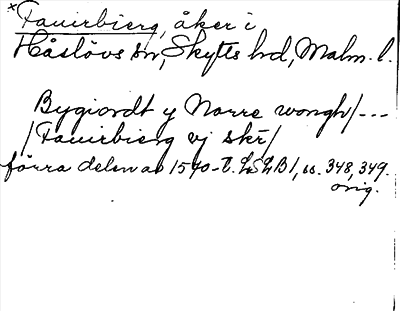 *Fauirbierg, åker i
Håslövs sn, Skytts hd, Malm. l.
Bygiordt y Norre wongh/---
/Fauirbierg vj skr/
förra delen av 1570-t. LSLB1, ss. 348, 349.
orig.